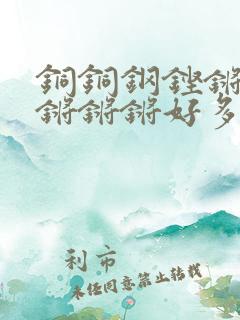 銅銅鋼鏗鏘
鏘鏘鏘好多
利市
未经同意禁止转载